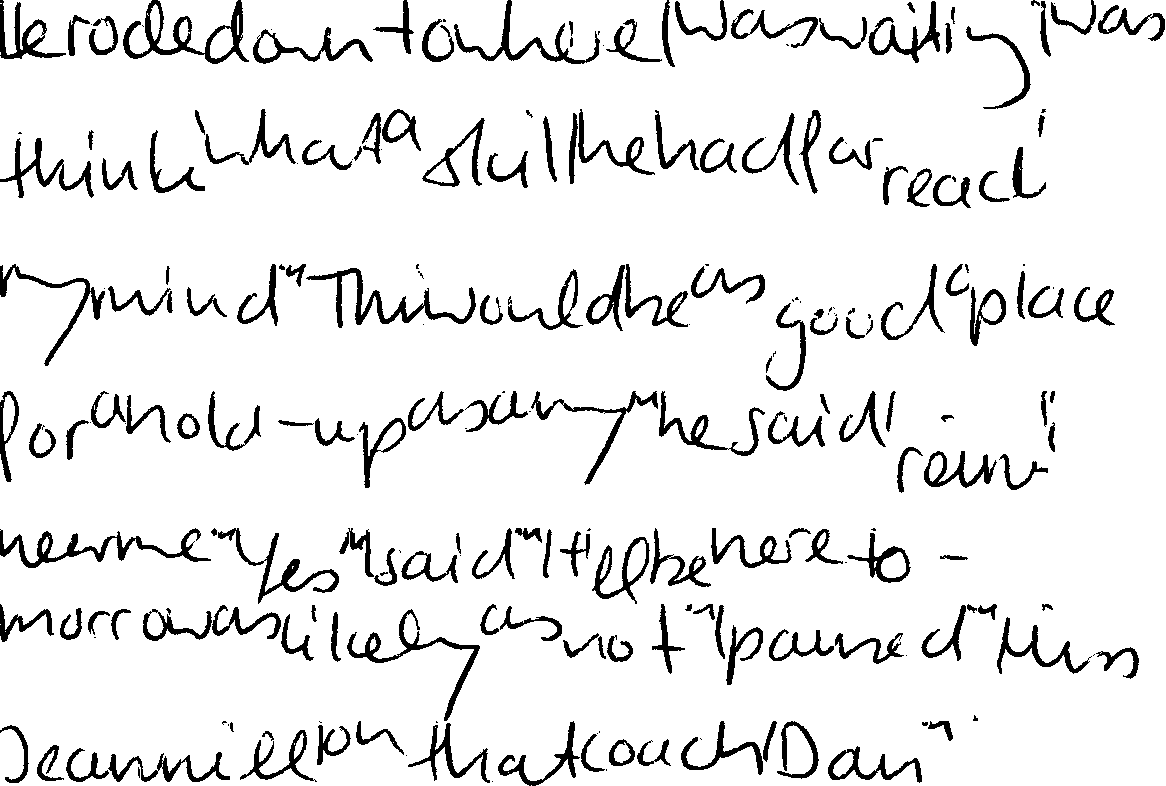 He rode down to where I was waiting I was
think what a skill he had for read
my mind " This would be as good a place
for a hold-up as any " he said rein
near me " Yes " I said " It 'll be here to-
morrow as likely as not " I paused " Miss
Jeannie 'll on that coach Dan "